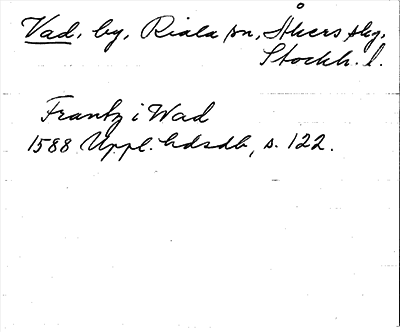 Vad, by, Riala sn, Åkers skg,
Stockh. l.
Frantz i Wad
1588 Uppl. hdsdb, s. 122.